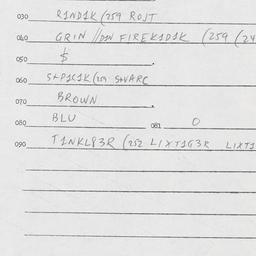 030 R1ND1K (259 ROJT
040 GRIN //D1N FIREK1D1K (259 (24
050 $
060 S+P1C1K (259 S+VARC
070 BROWN
080 BLU 081 0
090 T1NKL83R (252 LIXT1G3R LIXT1